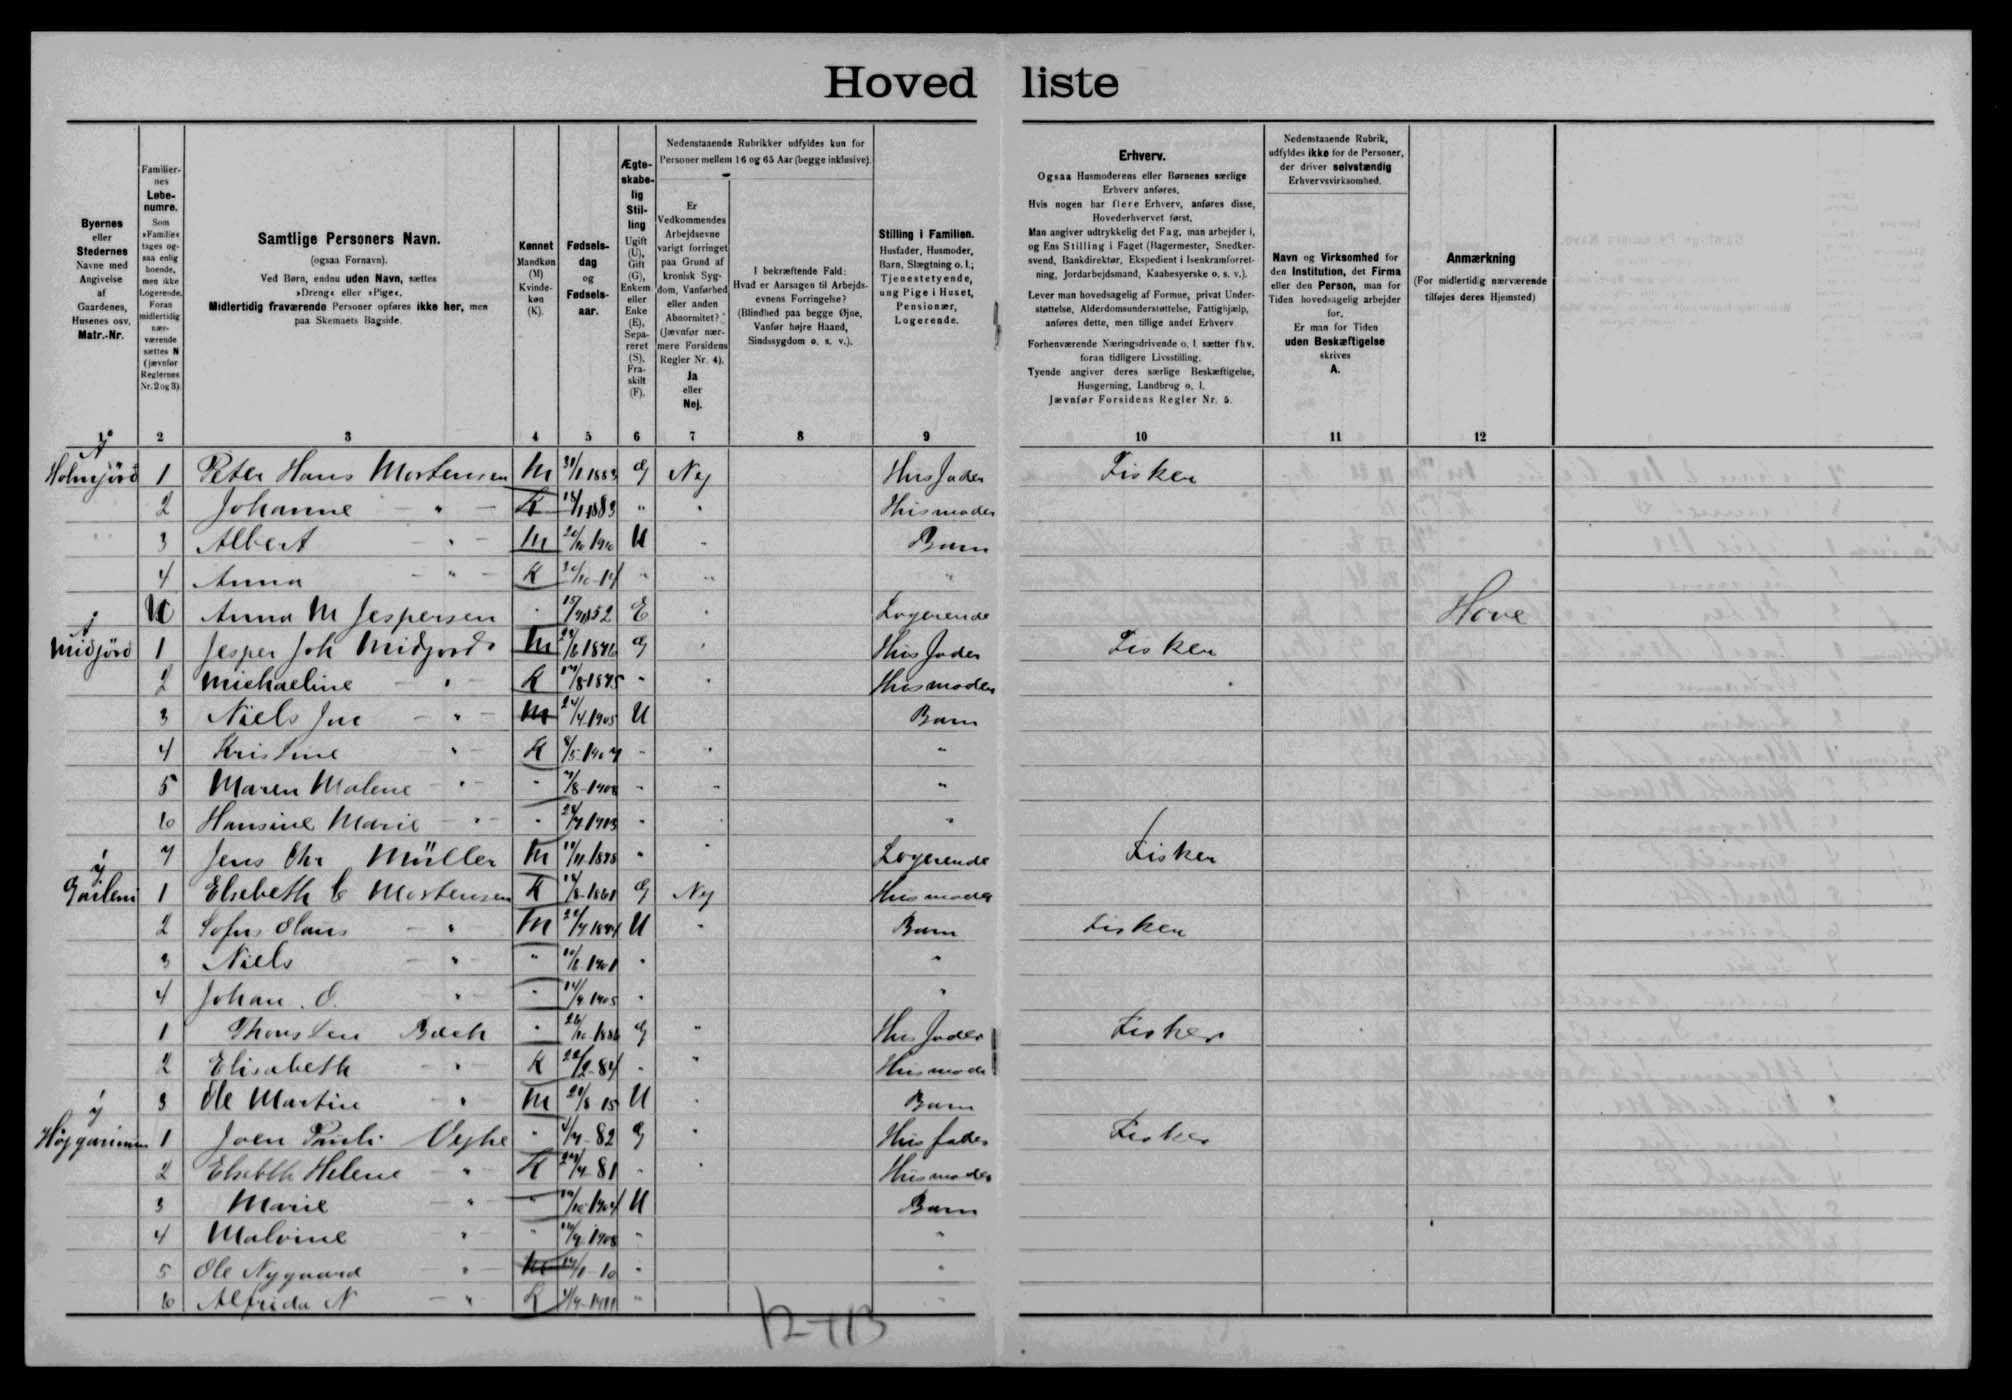 Hovedliste
Byernes
eller
Stedernes
Navne med
Angivelse
af
Gaardenes,
Husenes osv.
Matr.-Nr.
Familier-
nes
Løbe-
numre.
Som
»Familie«
tages og-
saa enlig
boende,
men ikke
Logerende.
Foran
midlertidig
nær-
værende
sættes N
(jævnfør
Reglernes
Nr. 2 og 3).
Samtlige Personers Navn.
(ogsaa Fornavn).
Ved Børn, endnu uden Navn, sættes
»Dreng« eller »Pige«.
Midlertidig fraværende Personer opføres ikke her, men
paa Skemaets Bagside.
Kønnet
Mandkøn
(M)
Kvinde-
køn
(K).
Fødsels-
dag
og
Fødsels-
aar.
Ægte-
skabe-
lig
Stil-
ling
Ugift
(U),
Gift
(G),
Enkem.
eller
Enke
(E),
Sepa-
reret
(S),
Fra-
skilt
(F).
Nedenstaaende Rubrikker udfyldes kun for
Personer mellem 16 og 65 Aar (begge inklusive).
Er
Vedkommendes
Arbejdsevne
varigt forringet
paa Grund af
kronisk Syg-
dom, Vanførhed
eller anden
Abnormitet?
(Jævnfør nær-
mere Forsidens
Regler Nr. 4).
Ja
eller
Nej.
I bekræftende Fald:
Hvad er Aarsagen til Arbejds-
evnens Forringelse?
(Blindhed paa begge Øjne,
Vanfør højre Haand,
Sindssygdom o. s. v.).
Stilling i Familien.
Husfader, Husmoder,
Barn, Slægtning o. l.;
Tjenestetyende,
ung Pige i Huset,
Pensionær,
Logerende.
Erhverv.
Ogsaa Husmoderens eller Børnenes særlige
Erhverv anføres.
Hvis nogen har flere Erhverv, anføres disse,
Hovederhvervet først.
Man angiver udtrykkelig det Fag, man arbejder i,
og Ens Stilling i Faget (Bagermester, Snedker-
svend, Bankdirektør, Ekspedient i Isenkramforret-
ning, Jordarbejdsmand, Kaabesyerske o. s. v.).
Lever man hovedsagelig af Formue, privat Under-
støttelse, Alderdomsunderstøttelse, Fattighjælp,
anføres dette, men tillige andet Erhverv
Forhenværende Næringsdrivende o. l. sætter fhv.
foran tidligere Livsstilling.
Tyende angiver deres særlige Beskæftigelse,
Husgerning, Landbrug o. l.
Jævnfør Forsidens Regler Nr. 5.
Nedenstaaende Rubrik,
udfyldes ikke for de Personer,
der driver selvstændig
Erhvervsvirksomhed.
Navn og Virksomhed for
den Institution, det Firma
eller den Person, man for
Tiden hovedsagelig arbejder
for.
Er man for Tiden
uden Beskæftigelse
skrives
A.
Anmærkning
(For midlertidig nærværende
tilføjes deres Hjemsted)
1 2 3 4 5 6 7 8 9 10 11 12
1 Peter Hans Mortensen M 1883 G Nej Husfader Fisker
2 Johanne - " - K 1883 " " Husmoder
3 Albert - " - M 1910 U " Barn
4 Anna - " - K " " "
Anna M Jespersen " E " Logerende Hove
Midjörd 1 Jesper Joh Midjord M G " Husfader Fisker
2 Michaeline - " - K " " Husmoder
3 Niels - " - M 24/4 1905 U Barn
4 Kristine - " - K " " "
5 Maren Malene - " - " " " "
6 Hansine Marie - " - " 1913 " "
7 Jens Chr Müller M " " Logerende Fisker
1 Elsebeth C Mortensen K G Nej Husmoder
2 Sofus Olaus - " - M U " Barn Fisker
3 Niels - " - " 1901 " "
4 Johan. O. " - " 1905 " "
1 Bæch " 26/10 1886 G " Husfader Fisker
2 Elisabeth - " - K 22/2-84 " " Husmoder
3 Ole Martin - " - M U " Barn
1 Joen Pauli Vejhe " 82 G " Husfader Fisker
2 Elsebeth Helene - " - K 81 " " Husmoder
3 Marie - " - " U Barn
4 Malvine - " - " 1908 " "
5 Ole Nygaard - " - M " "
6 Alfrida N - " - K " "
12+13